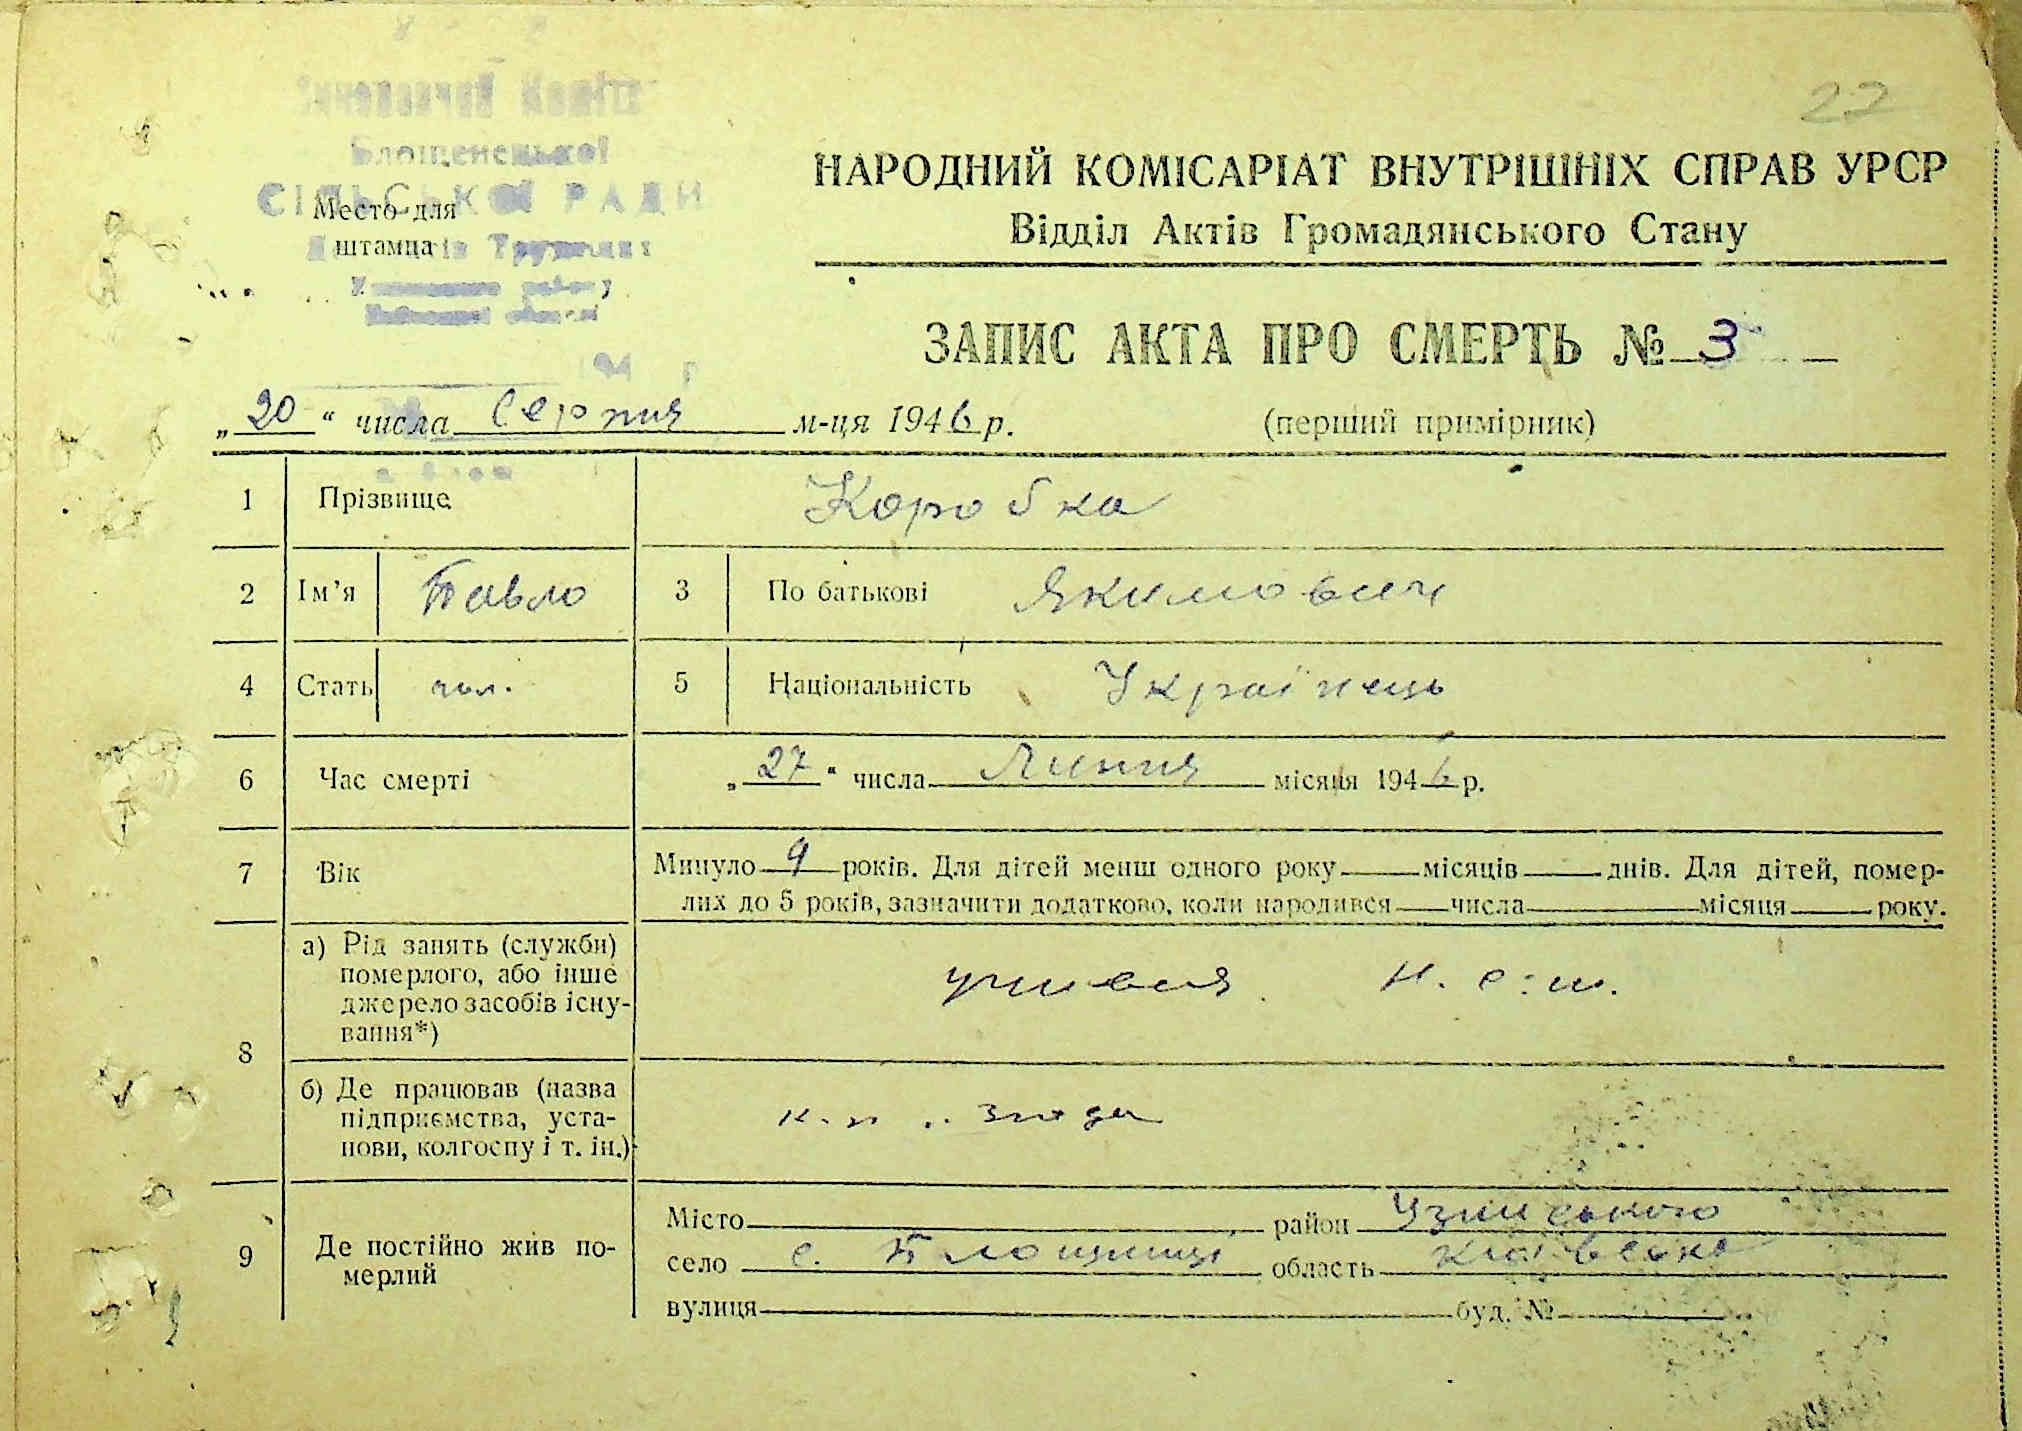 22
Блощенецької
СІЛЬСЬКОЇ РАДИ
Место для
штампа
НАРОДНИЙ КОМІСАРІАТ ВНУТРІШНІХ СПРАВ УРСР
Відділ Актів Громадянського Стану
ЗАПИС АКТА ПРО СМЕРТЬ № 3
„20“ числа Серпня м-ця 1946 р.
(перший примірник)
1 Прізвище Коробка
2 Ім’я Павло 3 По батькові Якимович
4 Стать чол. 5 Національність Українець
6 Час смерті „27“ числа Липня місяця 1946 р.
7 Вік Минуло 9 років. Для дітей менш одного року місяців днів. Для дітей, помер-
лих до 5 років, зазначити додатково, коли народився числа місяця року.
8 а) Рід занять (служби)
померлого, або інше
джерело засобів існу-
вання*)
учився Н. с. ш.
б) Де працював (назва
підприємства, уста-
нови, колгоспу і т. ін.)
9 Де постійно жив по-
мерлий
Місто район Узинського
село с. Блощинці область Київська
вулиця буд. №